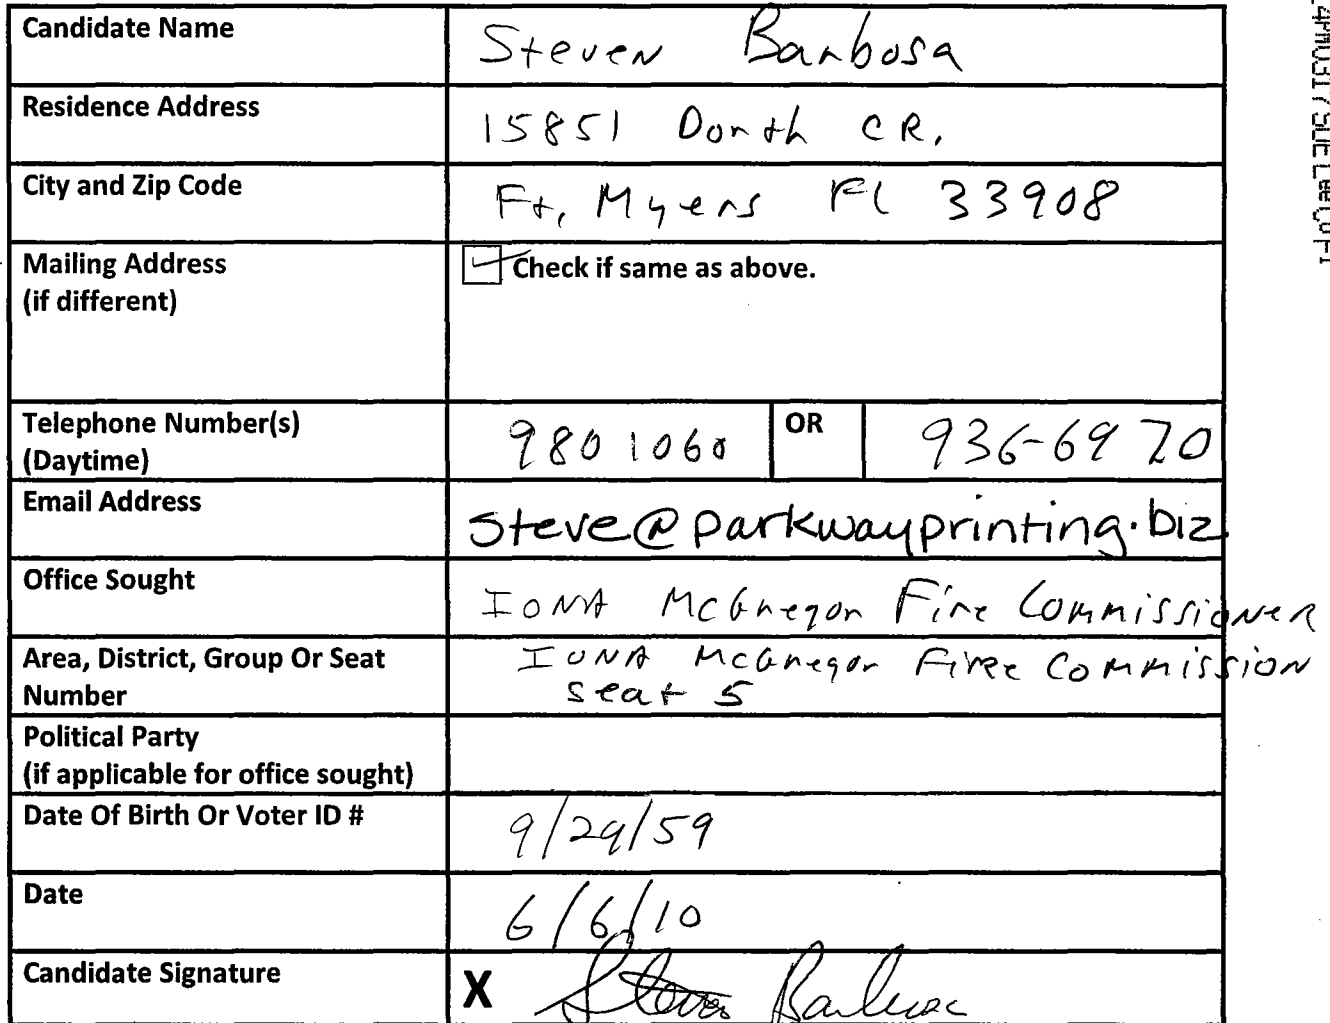 Candidate Name Steven Barbosa
Residence Address 15851 Donth CR.
City and Zip Code Ft. Myers Fl 33908
Mailing Address Check if same as above.
(if different)
Telephone Number(s) 980 1060 OR 936-6970
(Daytime)
Email Address steve@parkwayprinting.biz
Office Sought IONA McGregor Fire Commissioner
Area, District, Group Or Seat IONA McGregor Fire Commission
Number seat 5
Political Party
(if applicable for office sought)
Date Of Birth Or Voter ID # 9/29/59
Date 6/6/10
Candidate Signature X Steven Barbosa